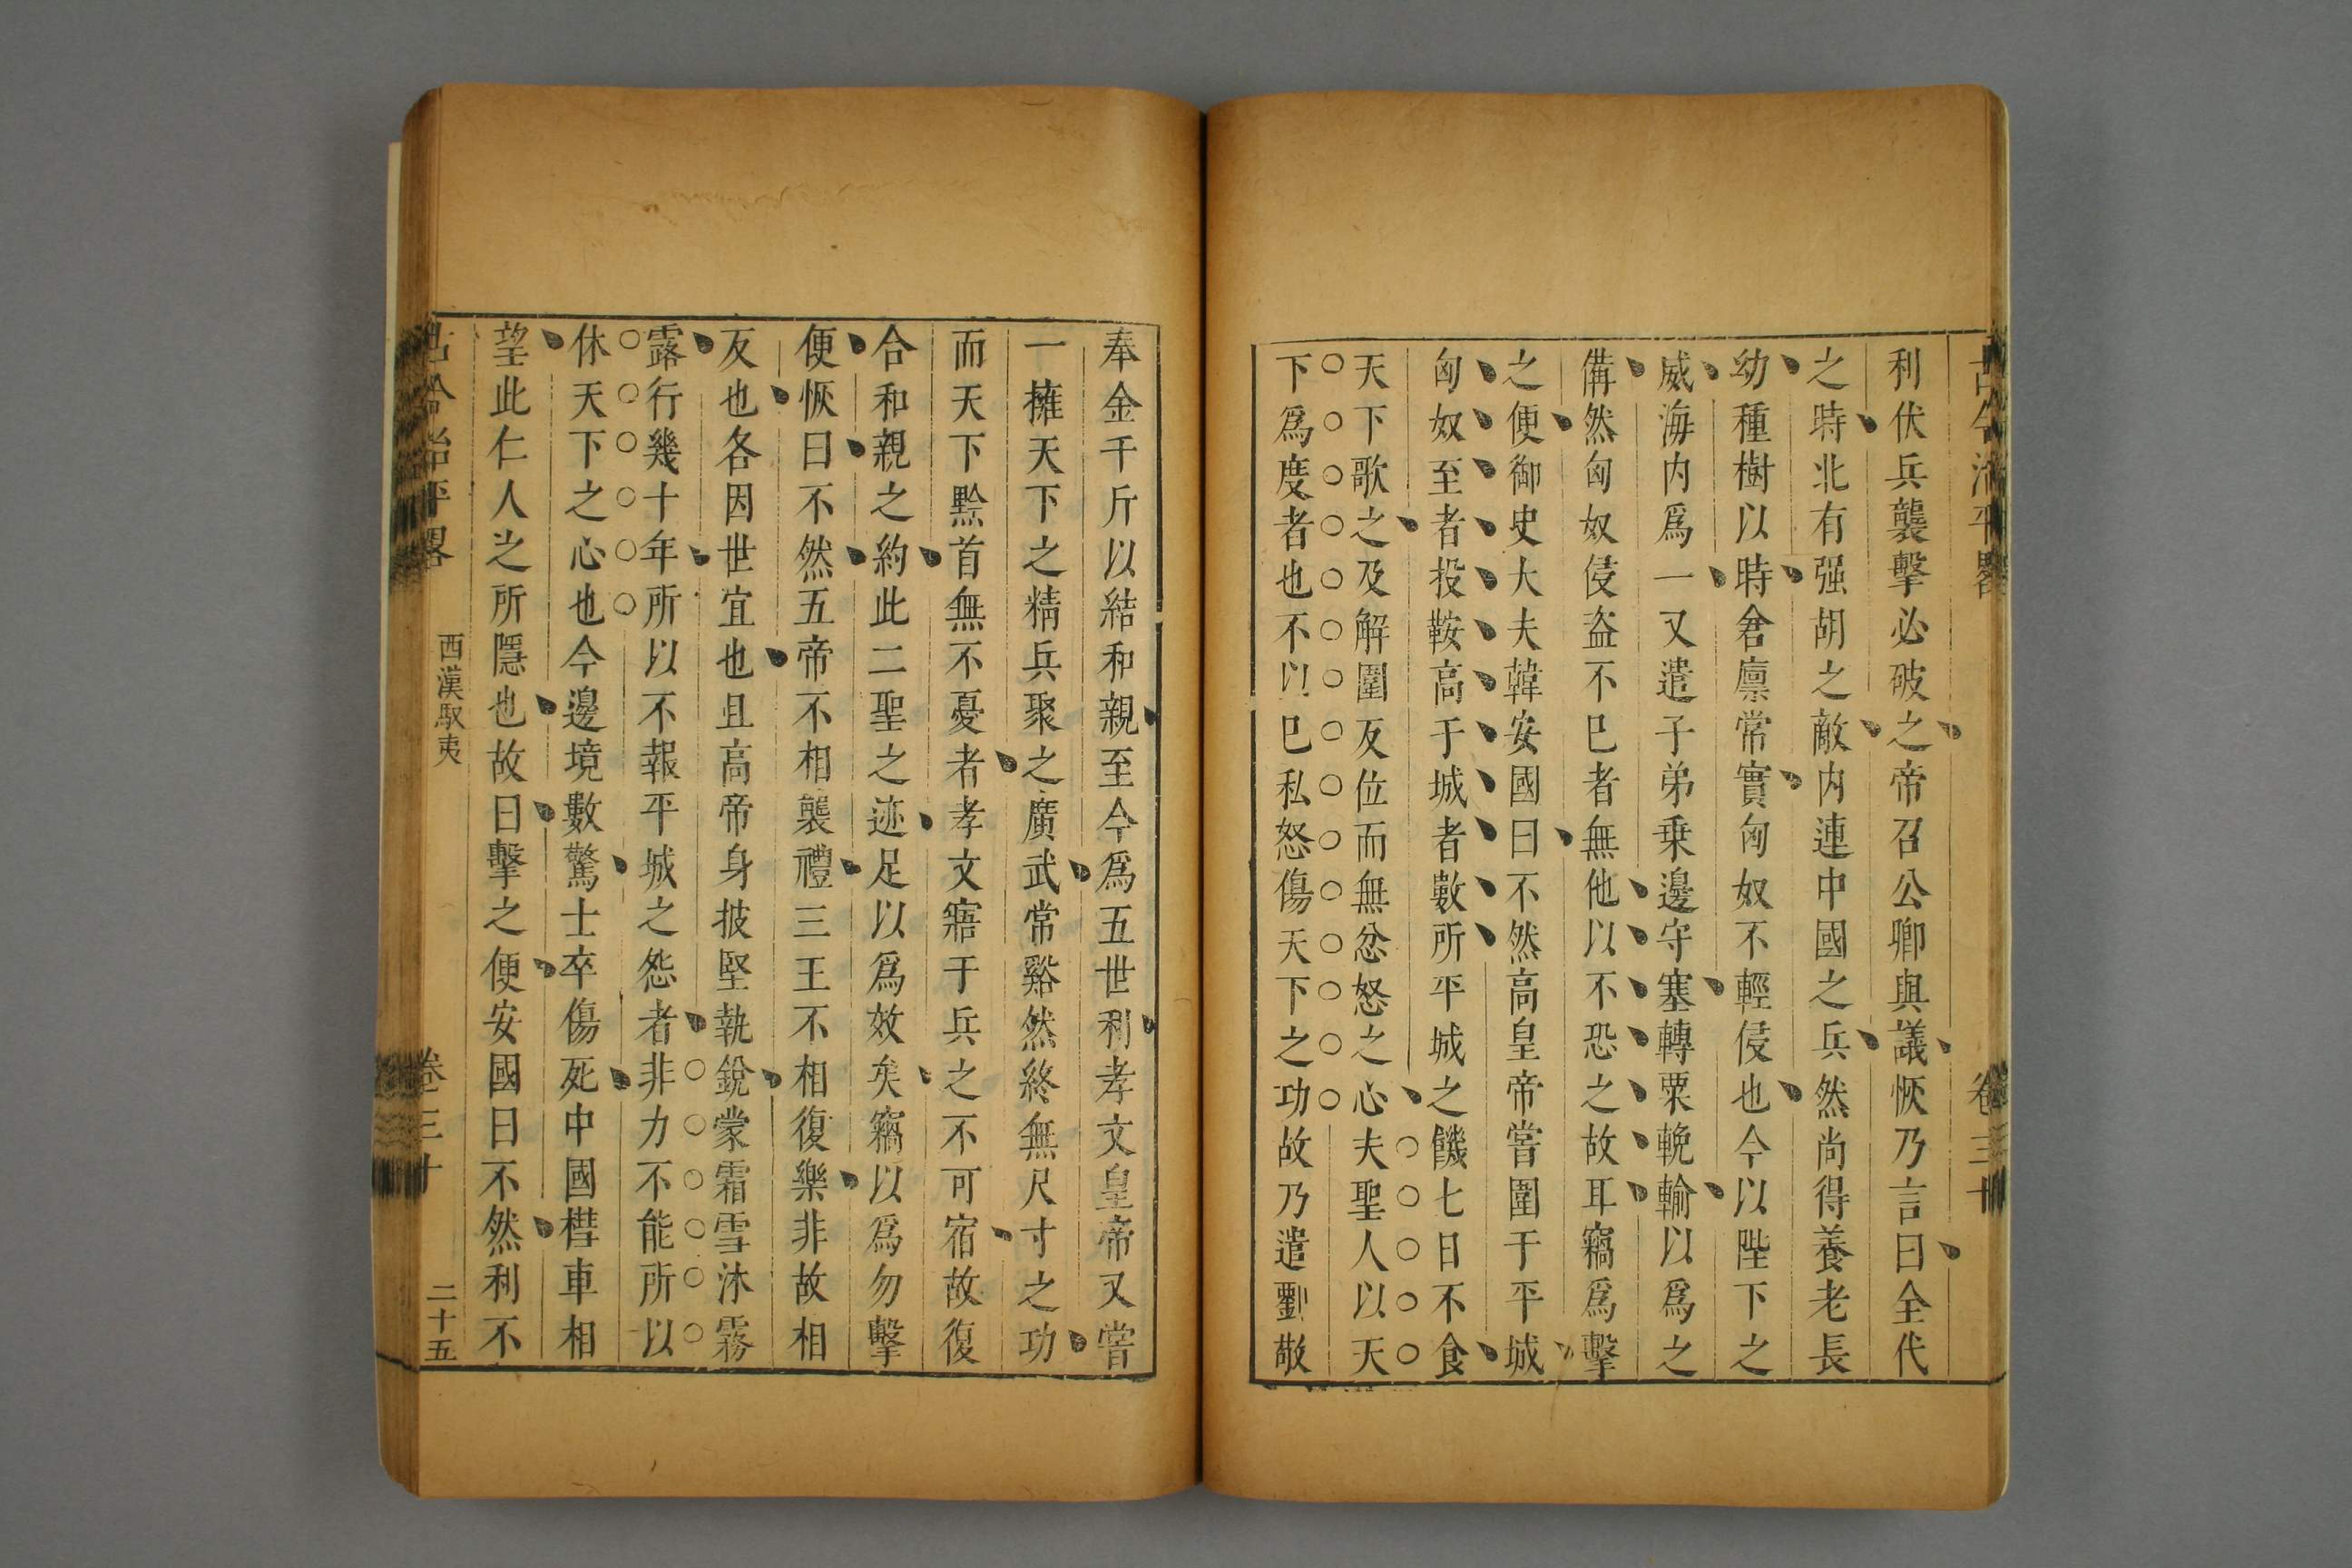 古今治平畧
卷三十
利伏兵襲擊必破之帝召公卿與議恢乃言曰全代
之時北有强胡之敵内連中國之兵然尚得養老長
幼種樹以時倉廪常實匈奴不輕侵也今以陛下之
威海内爲一又遣子弟乗邊守塞轉粟輓輸以爲之
備然匈奴侵盗不巳者無他以不恐之故耳竊爲擊
之便御史大夫韓安國曰不然高皇帝嘗圍于平城
匈奴至者投鞍高于城者數所平城之饑七日不食
天下歌之及解圍反位而無忿怒之心夫聖人以天
下爲度者也不以巳私怒傷天下之功故乃遣劉敬
奉金千斤以結和親至今爲五世利孝文皇帝又嘗
一擁天下之精兵聚之廣武常谿然終無尺寸之功
而天下黔首無不憂者孝文寤于兵之不可宿故復
合和親之約此二聖之迹足以爲效矣竊以爲勿擊
便恢曰不然五帝不相襲禮三王不相復樂非故相
反也各因世宜也且高帝身披堅執銳蒙霜雪沐霧
露行幾十年所以不報平城之怨者非力不能所以
休天下之心也今邊境數驚士卒傷死中國槥車相
望此仁人之所隱也故曰擊之便安國曰不然利不
古今治平畧
西漢馭夷
卷三十
二十五